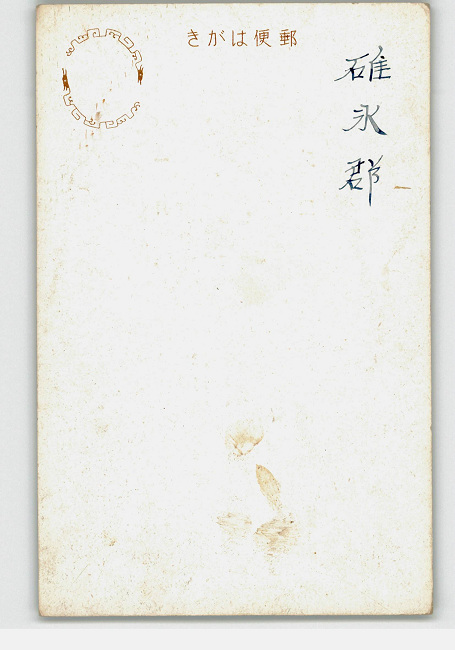 きがは便郵
碓氷郡